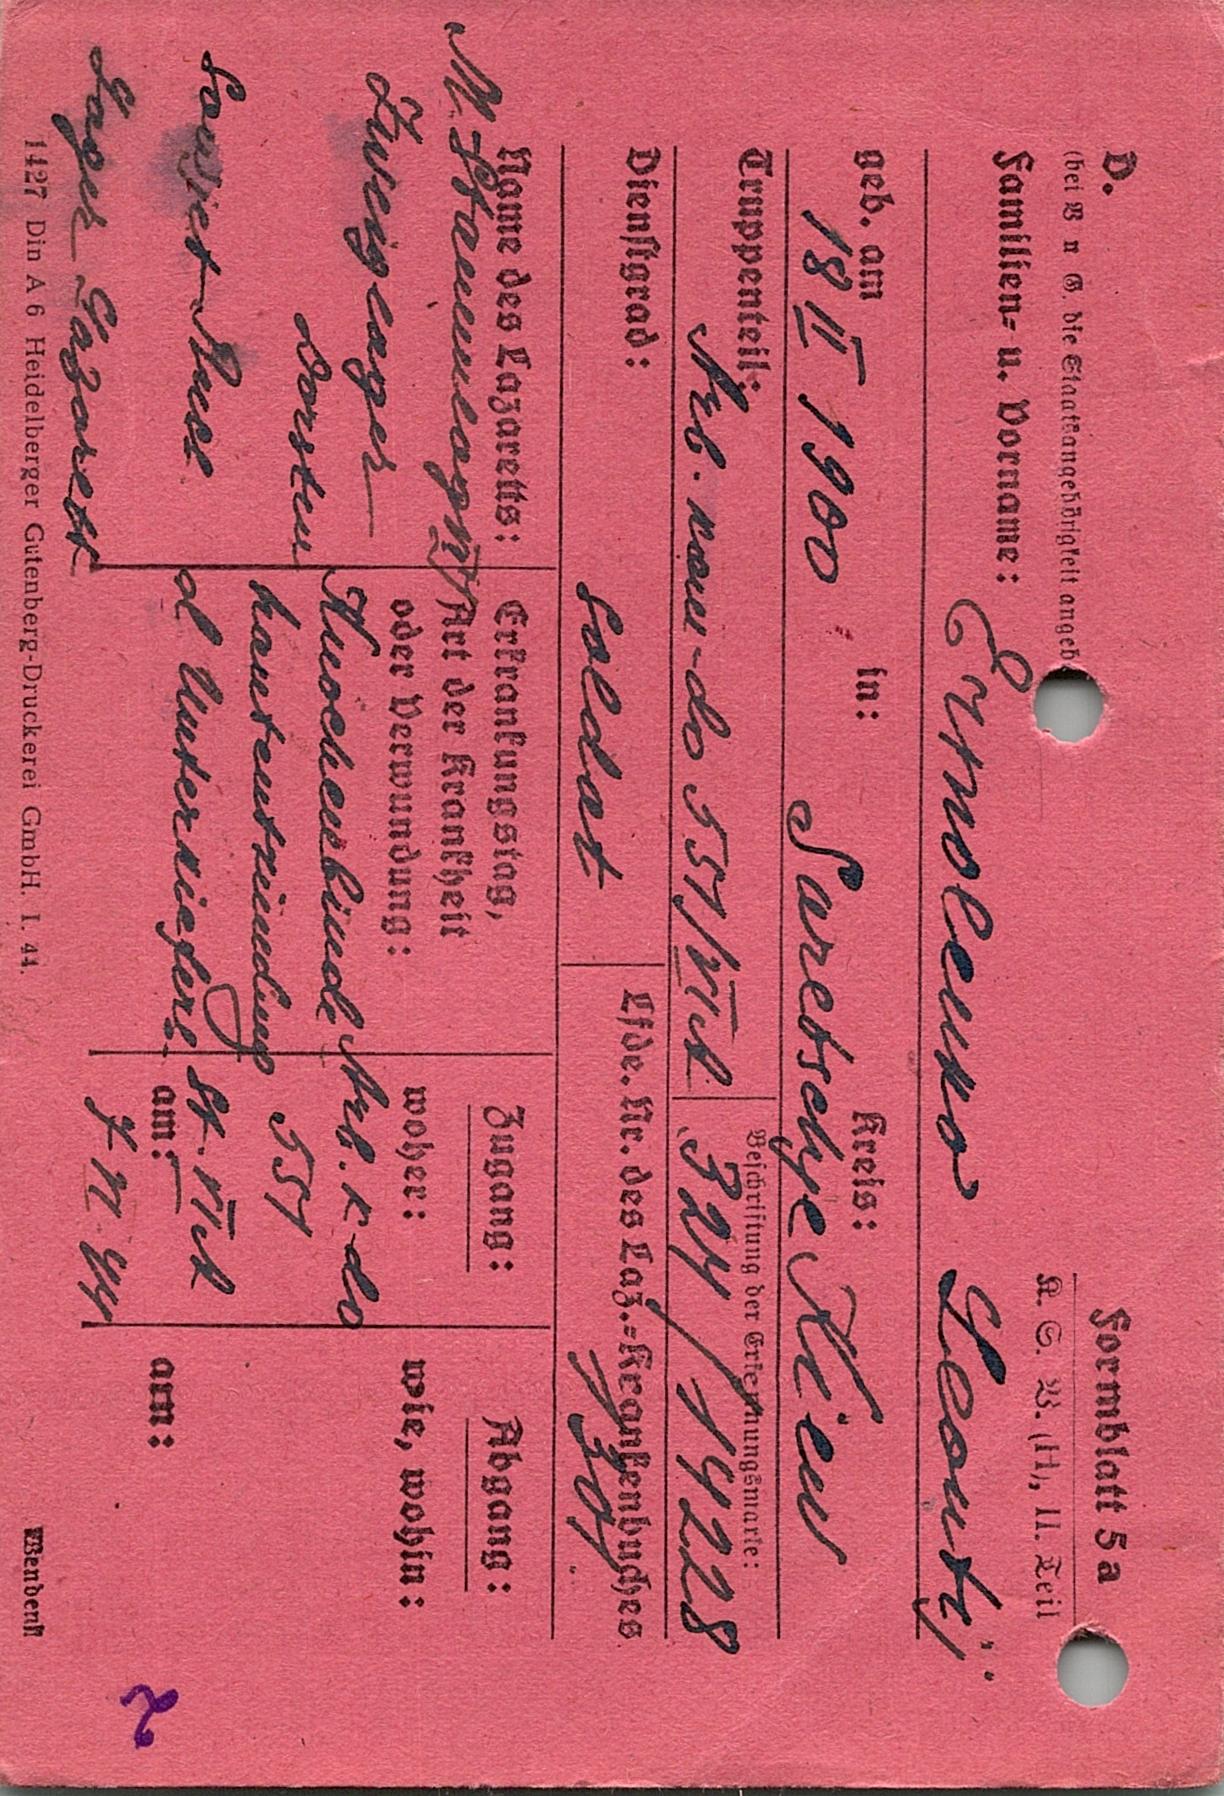 D.
Formblatt 5a
(bei B u G. die Staatsangehörigkeit angeb
K. S. V. (H), II. Teil
Familien- u. Vorname: Ermolenko Leontij
geb. am 18 II 1900 in: Saretschje Kreis: Kiew
Truppenteil: Arb. kdo 551/VI K
Beschriftung der Erkennungsmarke: 324/14228
Dienstgrad: Soldat
Lfde. Nr. des Laz.-Krankenbuches
Name des Lazaretts:
M. Stammlager VI/
Zweiglager
Dorsten
Sowjet Russ
Lager Lazarett
Erkrankungstag,
Art der Krankheit
oder Verwundung:
Knochenbinde
hautentzündung
d Unterkiefers
Zugang:
woher:
Arb. k-do
551
St. VI K
am:
Abgang:
wie, wohin:
am:
1427 Din A 6 Heidelberger Gutenberg-Druckerei GmbH. I. 44.
Wenden!
2